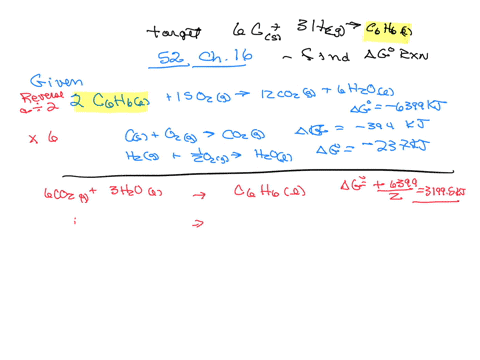 target 6 C(s) + 3 H2(g) → C6H6(l)
52 Ch. 16 ~ find ΔG° RXN
Given
Reverse
÷ 2 2 C6H6(l) + 15 O2(g) → 12 CO2(g) + 6 H2O(l)
ΔG° = -6399 KJ
x 6 C(s) + O2(g) → CO2(g) ΔG° = -394 KJ
H2(g) + 1/2 O2(g) → H2O(l) ΔG° = -237 KJ
6CO2(g) + 3H2O(l) → C6H6(l) ΔG° = +6399/2 = 3199.5 KJ
→